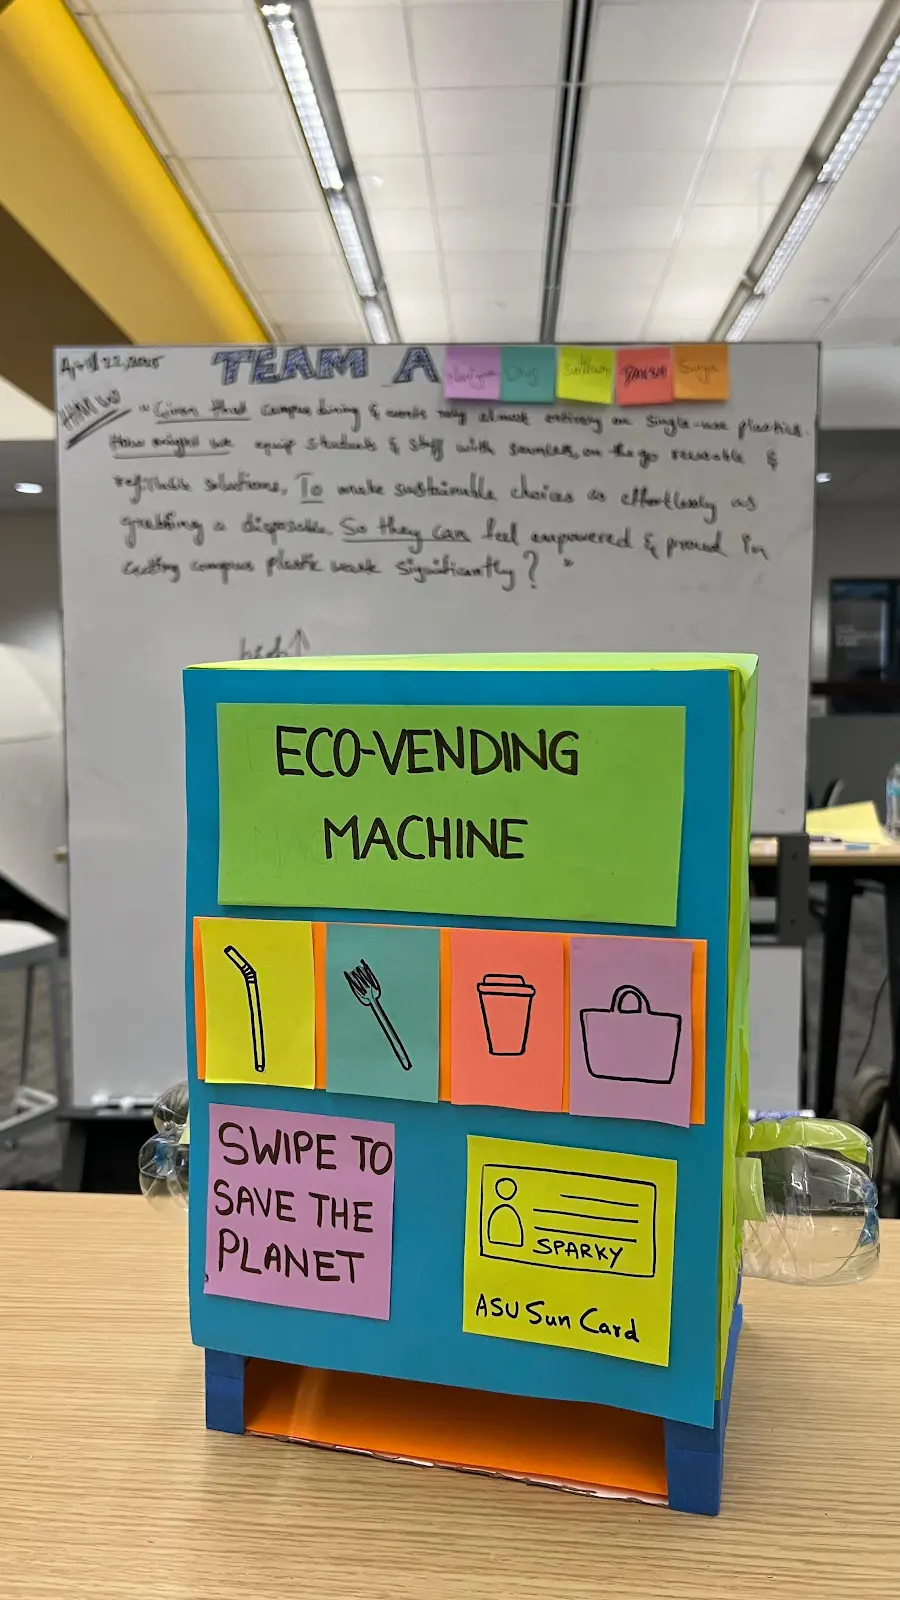 April 22, 2025
TEAM A
HMW
"Given that campus dining & events rely almost entirely on single-use plastics.
How might we equip students & staff with seamless, on-the-go reusable &
refillable solutions, To make sustainable choices as effortlessly as
grabbing a disposable. So they can feel empowered & proud in
cutting campus plastic waste significantly?"
high ↑
ECO-VENDING
MACHINE
SWIPE TO
SAVE THE
PLANET
SPARKY
ASU Sun Card